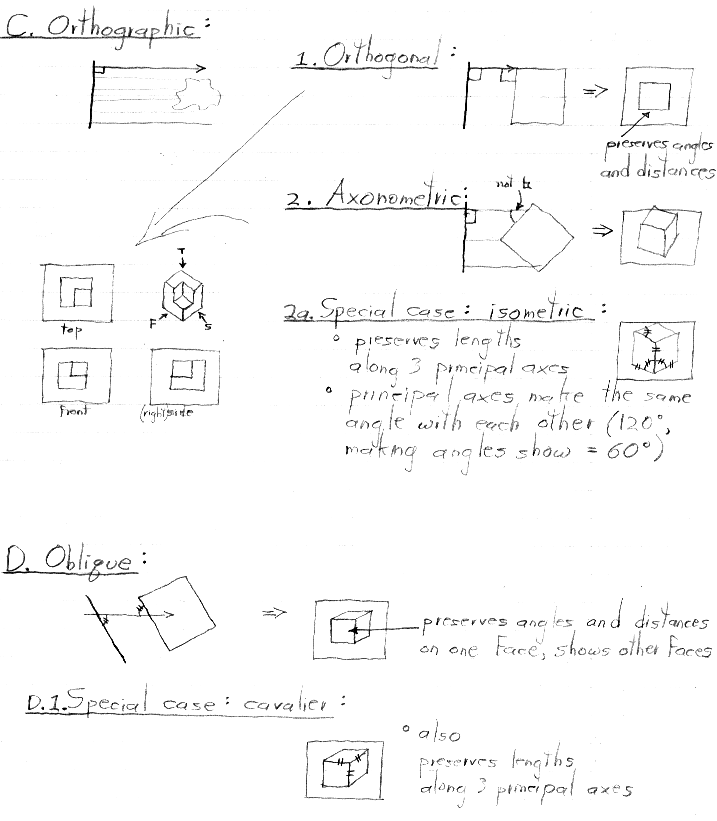 C. Orthographic:
1. Orthogonal:
preserves angles
and distances
2. Axonometric:
T
F
S
top
Front
(right)side
2a. Special case: isometric:
° preserves lengths
along 3 principal axes
° principal axes make the same
angle with each other (120°,
making angles show = 60°)
D. Oblique:
preserves angles and distances
on one Face, shows other Faces
D.1. Special case: cavalier:
° also
preserves lengths
along 3 principal axes